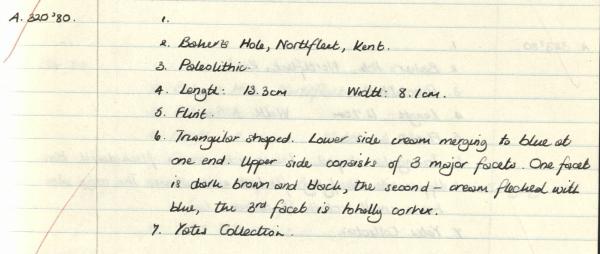 A. 320'80. 1.
2. Baker's Hole, Northfleet, Kent.
3. Paleolithic.
4. Length: 13.3cm Width: 8.1cm.
5. Flint.
6. Triangular shaped. Lower side cream merging to blue at
one end. Upper side consists of 3 major facets. One facet
is dark brown and black, the second - cream flecked with
blue, the 3rd facet is totally cortex.
7. Yates Collection.